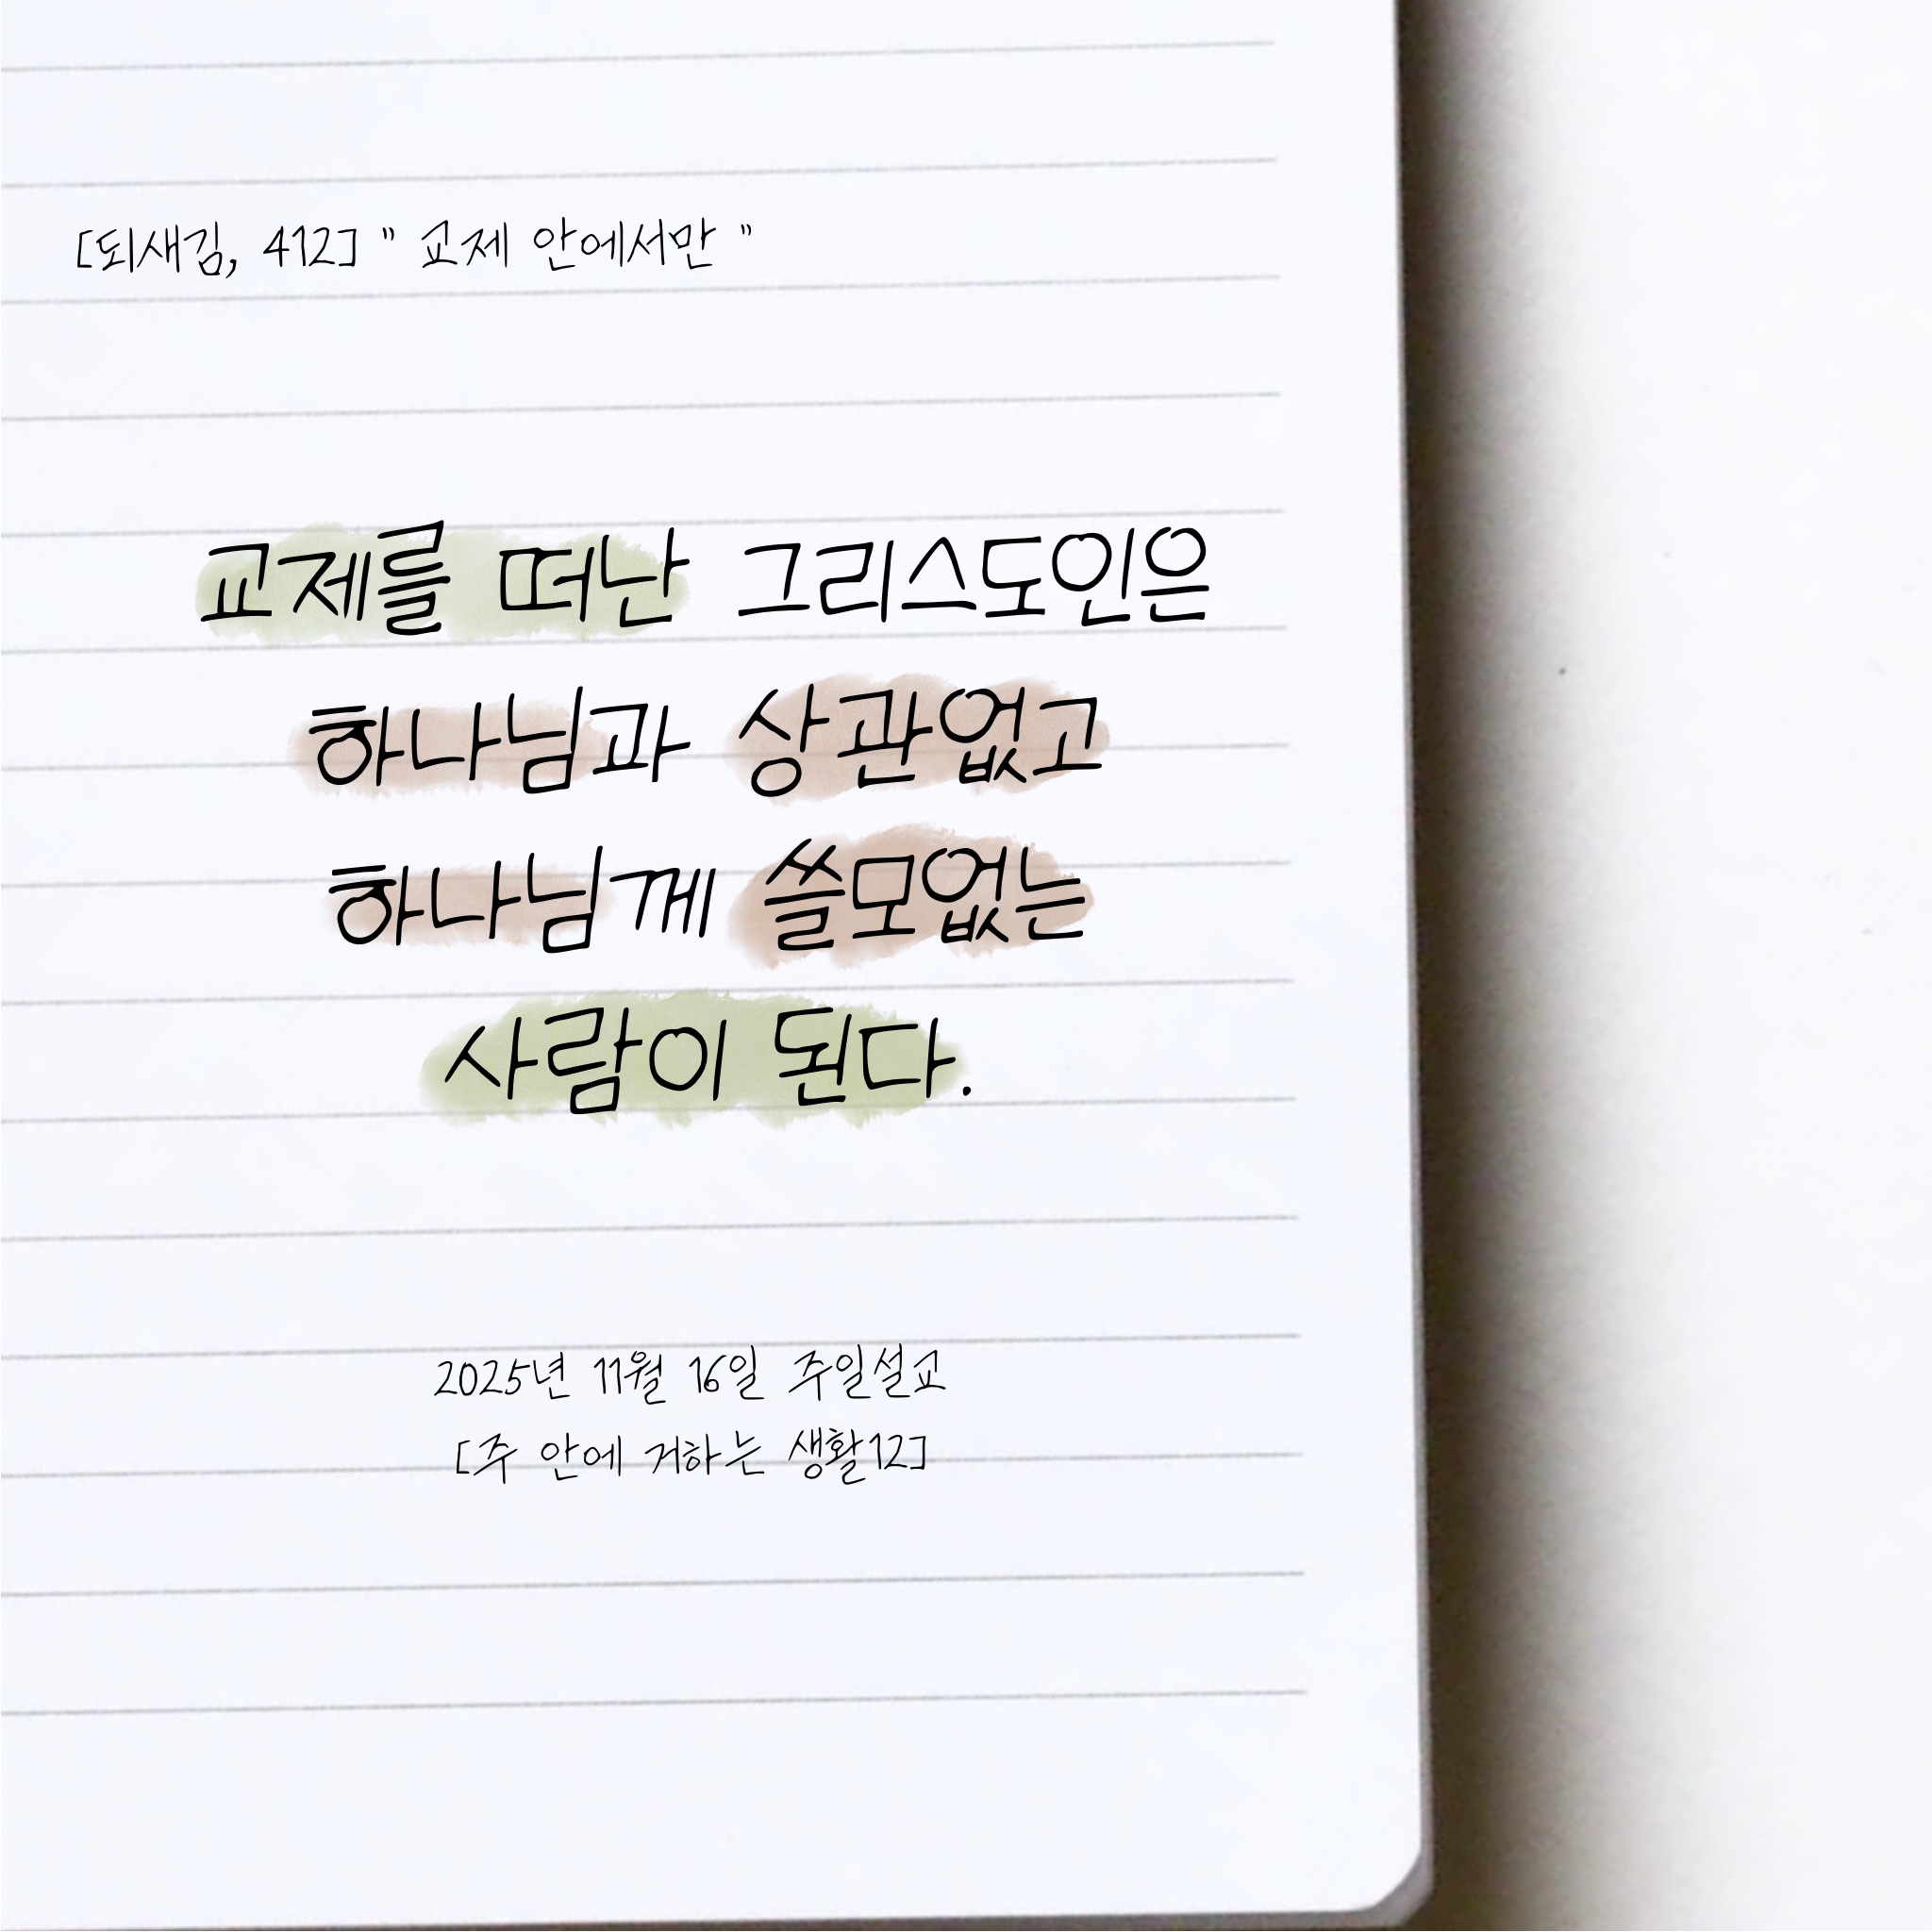 [되새김, 412] " 교제 안에서만 "
교제를 떠난 그리스도인은
하나님과 상관없고
하나님께 쓸모없는
사람이 된다.
2025년 11월 16일 주일설교
[주 안에 거하는 생활12]